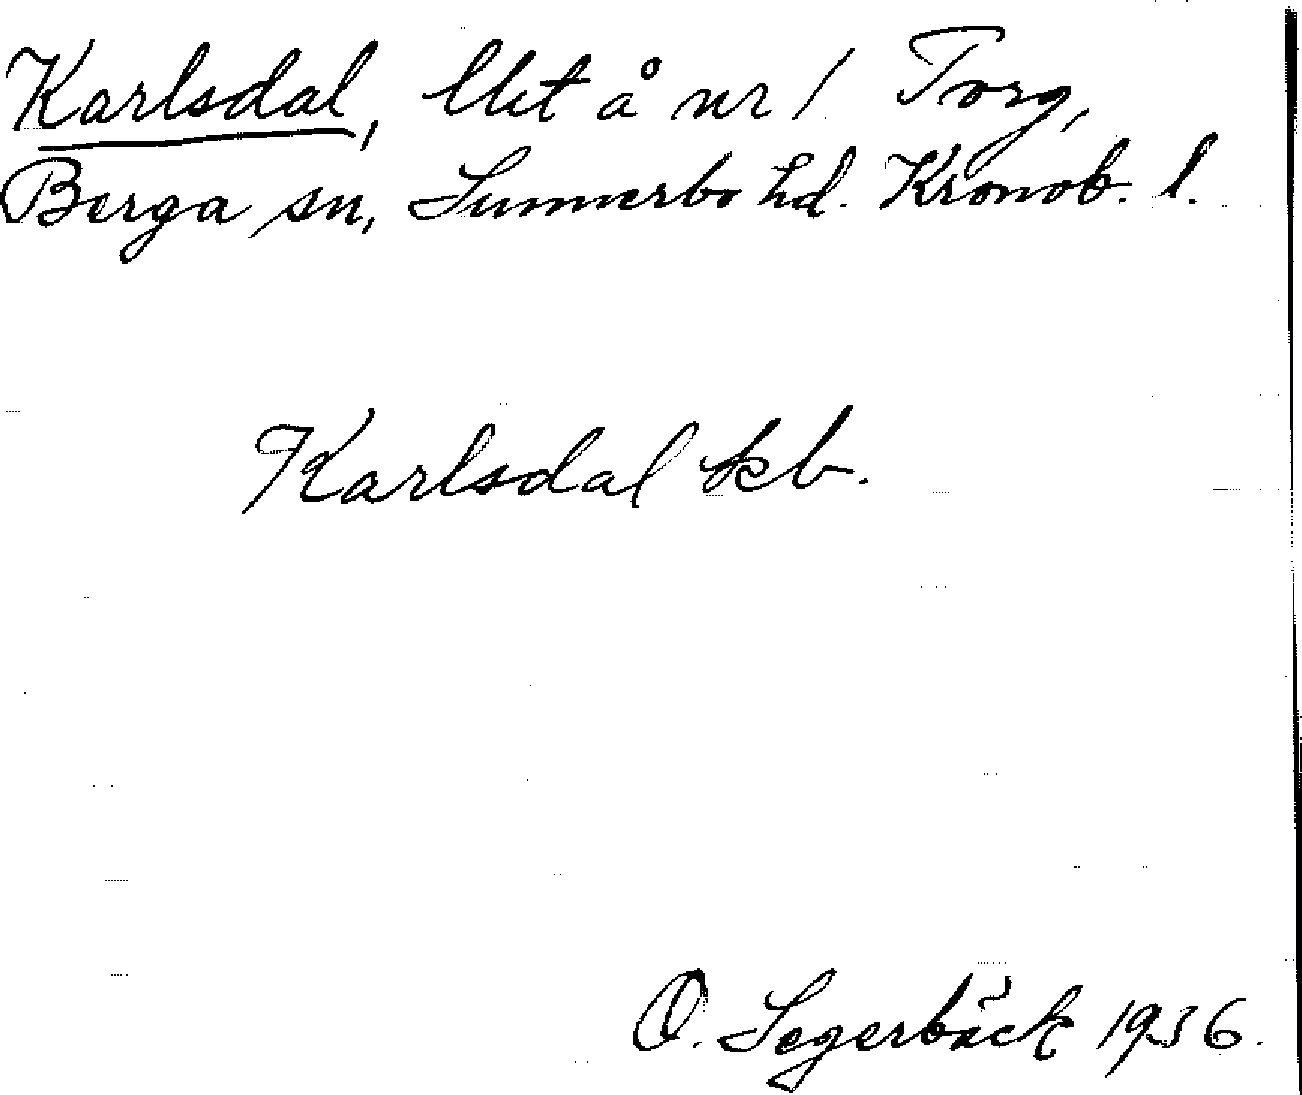 Karlsdal, lht å nr 1 Torg,
Berga sn, Sunnerbo hd. Kronob. l.
Karlsdal kb.
O. Segerbäck 1936.